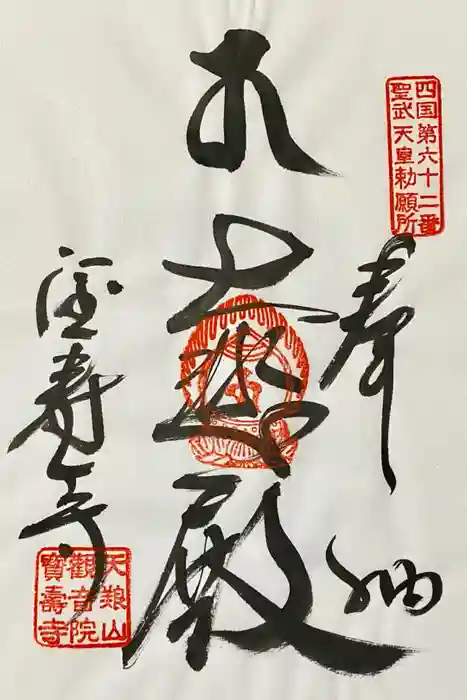 四国第六十二番
聖武天皇勅願所
奉納
大悲殿
宝寿寺
天養山
觀音院
寶壽寺